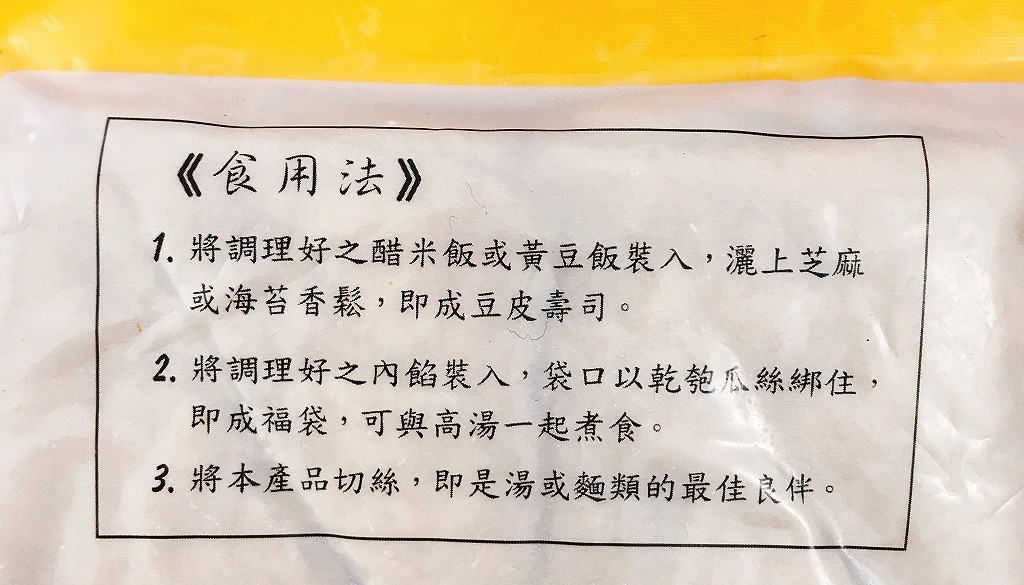 《食用法》
1. 將調理好之醋米飯或黃豆飯裝入，灑上芝麻
或海苔香鬆，即成豆皮壽司。
2. 將調理好之內餡裝入，袋口以乾匏瓜絲綁住，
即成福袋，可與高湯一起煮食。
3. 將本產品切絲，即是湯或麵類的最佳良伴。